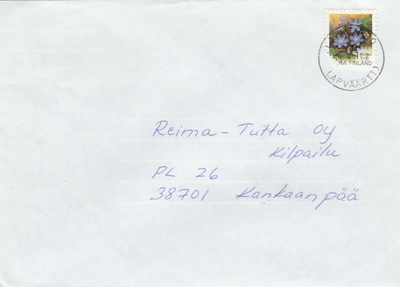 FINLAND
LAPVÄÄRTTI
Reima-Tutta Oy
Kilpailu
PL 26
38701 Kankaanpää